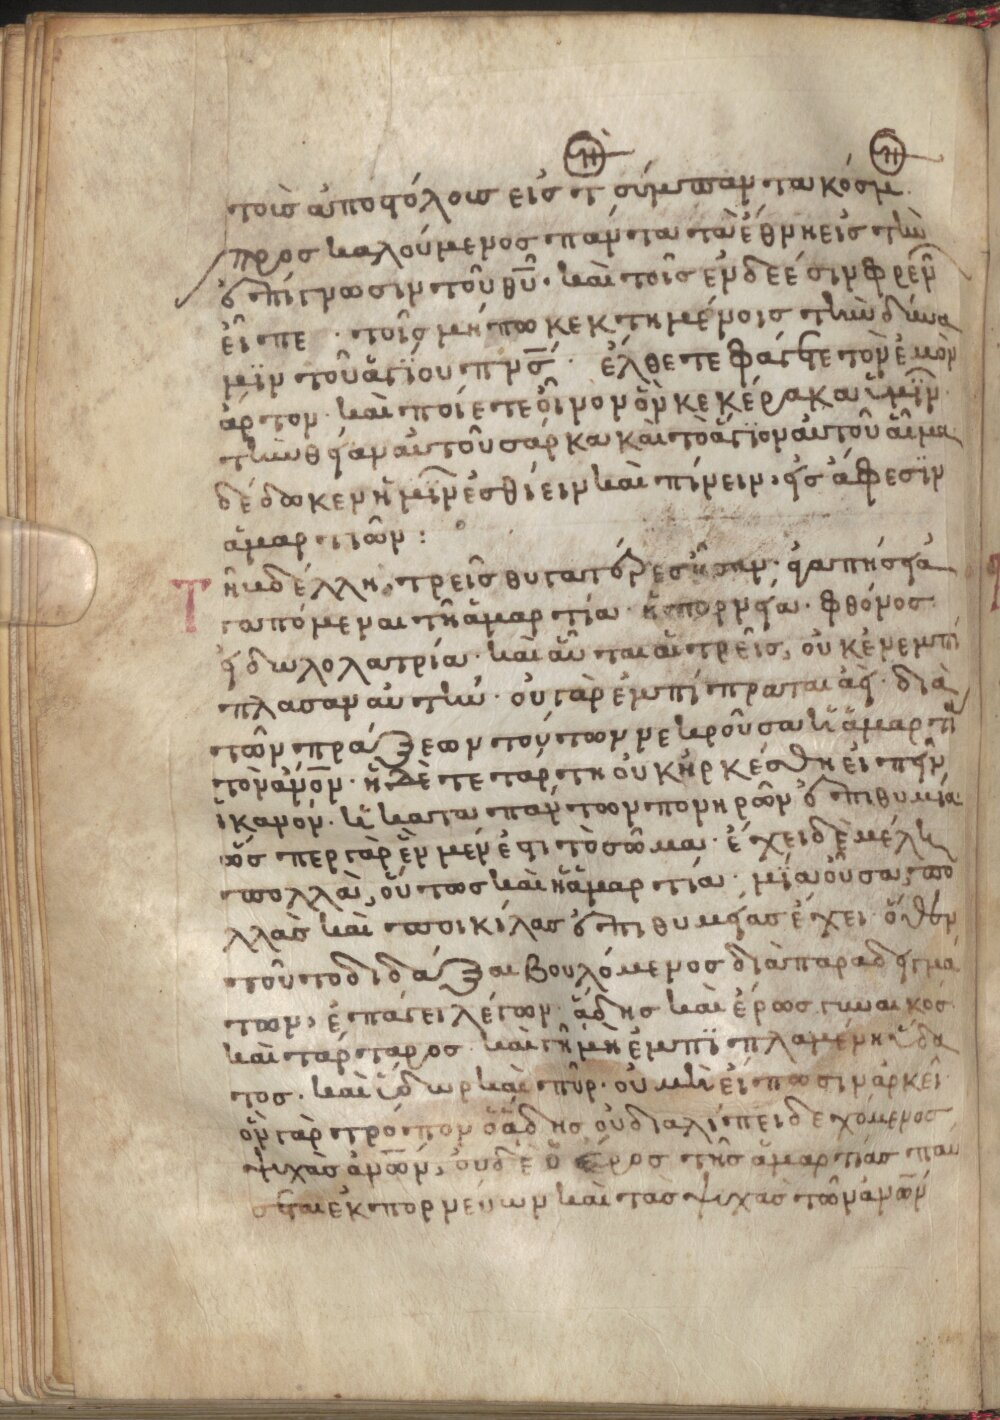 τοῖς ἀποστόλοις εἰς τ σύμπαντα κόσμ
προσκαλούμενος πάντα τὰ ἔθνη εἰς τὴν
ἐπίγνωσιν τοῦ θῡ· καὶ τοῖς ἐνδεέσιν φρεν̃
εἶπε · τοῖς μήπω κεκτημένοις τὴν δύνα
μϊν τοῦ ἁγΐου πν̅ς· ἔλθετε φάγετε τὸν ἐμὸν
ἄρτον· καὶ πίετε οἶνον ὃν κεκέρακα ὑμῖν·
τὴν θείαν αὐτοῦ σάρκα καὶ τὸ ἅγιον αὐτοῦ αἷμα
δέδωκεν ἡμῖν ἐσθίειν καὶ πίνειν, εἰς ἄφεσϊν
ἁμαρτιῶν :
Τῆ βδέλλη, τρεῖς θυγατέρες ἦσαν· ἀγαπήσει ἀ
γαπόμεναι τῆ ἁμαρτία· ἡ πορνεία· φθόνος
εἰδωλολατρία· καὶ αὗται αἱ τρεῖς, οὐκ ἐνεμπί
πλασαν αὐτήν· οὐ γὰρ ἐμπίπραται ἀεὶ· διὰ
τῶν πράξεων τούτων νεκροῦσα ἡ ἁμαρτί
τὸν ἄνο̅ν· ἡ δὲ τετάρτη οὐκ ἠρκέσθη εἰπεῖν
ἱκανόν· ἡ κατα πάντων πονηρῶν ἐπιθυμία
ὥσπερ γὰρ ἓν μέν ἐστι τὸ σῶμα· ἔχει δὲ μέλη
πολλὰ, οὕτως καὶ ἡ ἁμαρτία· μΐα οὖσα, πο
λλὰς καὶ ποικίλας ἐπιθυμείας ἔχει· ὅθεν
τοῦτο διδάξαι βουλόμενος διὰ παραδειγμά
των, ἐπάγει λέγων· ἅδης καὶ ἔρως γυναικός
καὶ τάρταρος· καὶ γῆ μὴ ἐμπϊπλαμένη ὕδα
τος· καὶ ὕδωρ καὶ πῦρ· οὐ μὴ εἴπωσιν ἀρκεῖ·
ὃν γὰρ τρόπον ὁ ἅδης οὐ διαλίπει δεχόμενος
ψυχὰς ἀνω̅ν, οὐδὲ ὁ ἔρος τῆς ἁμαρτίας παύ
σεται ἐκπορνεύων καὶ τὰς ψυχὰς τῶν ἀνω̅ν